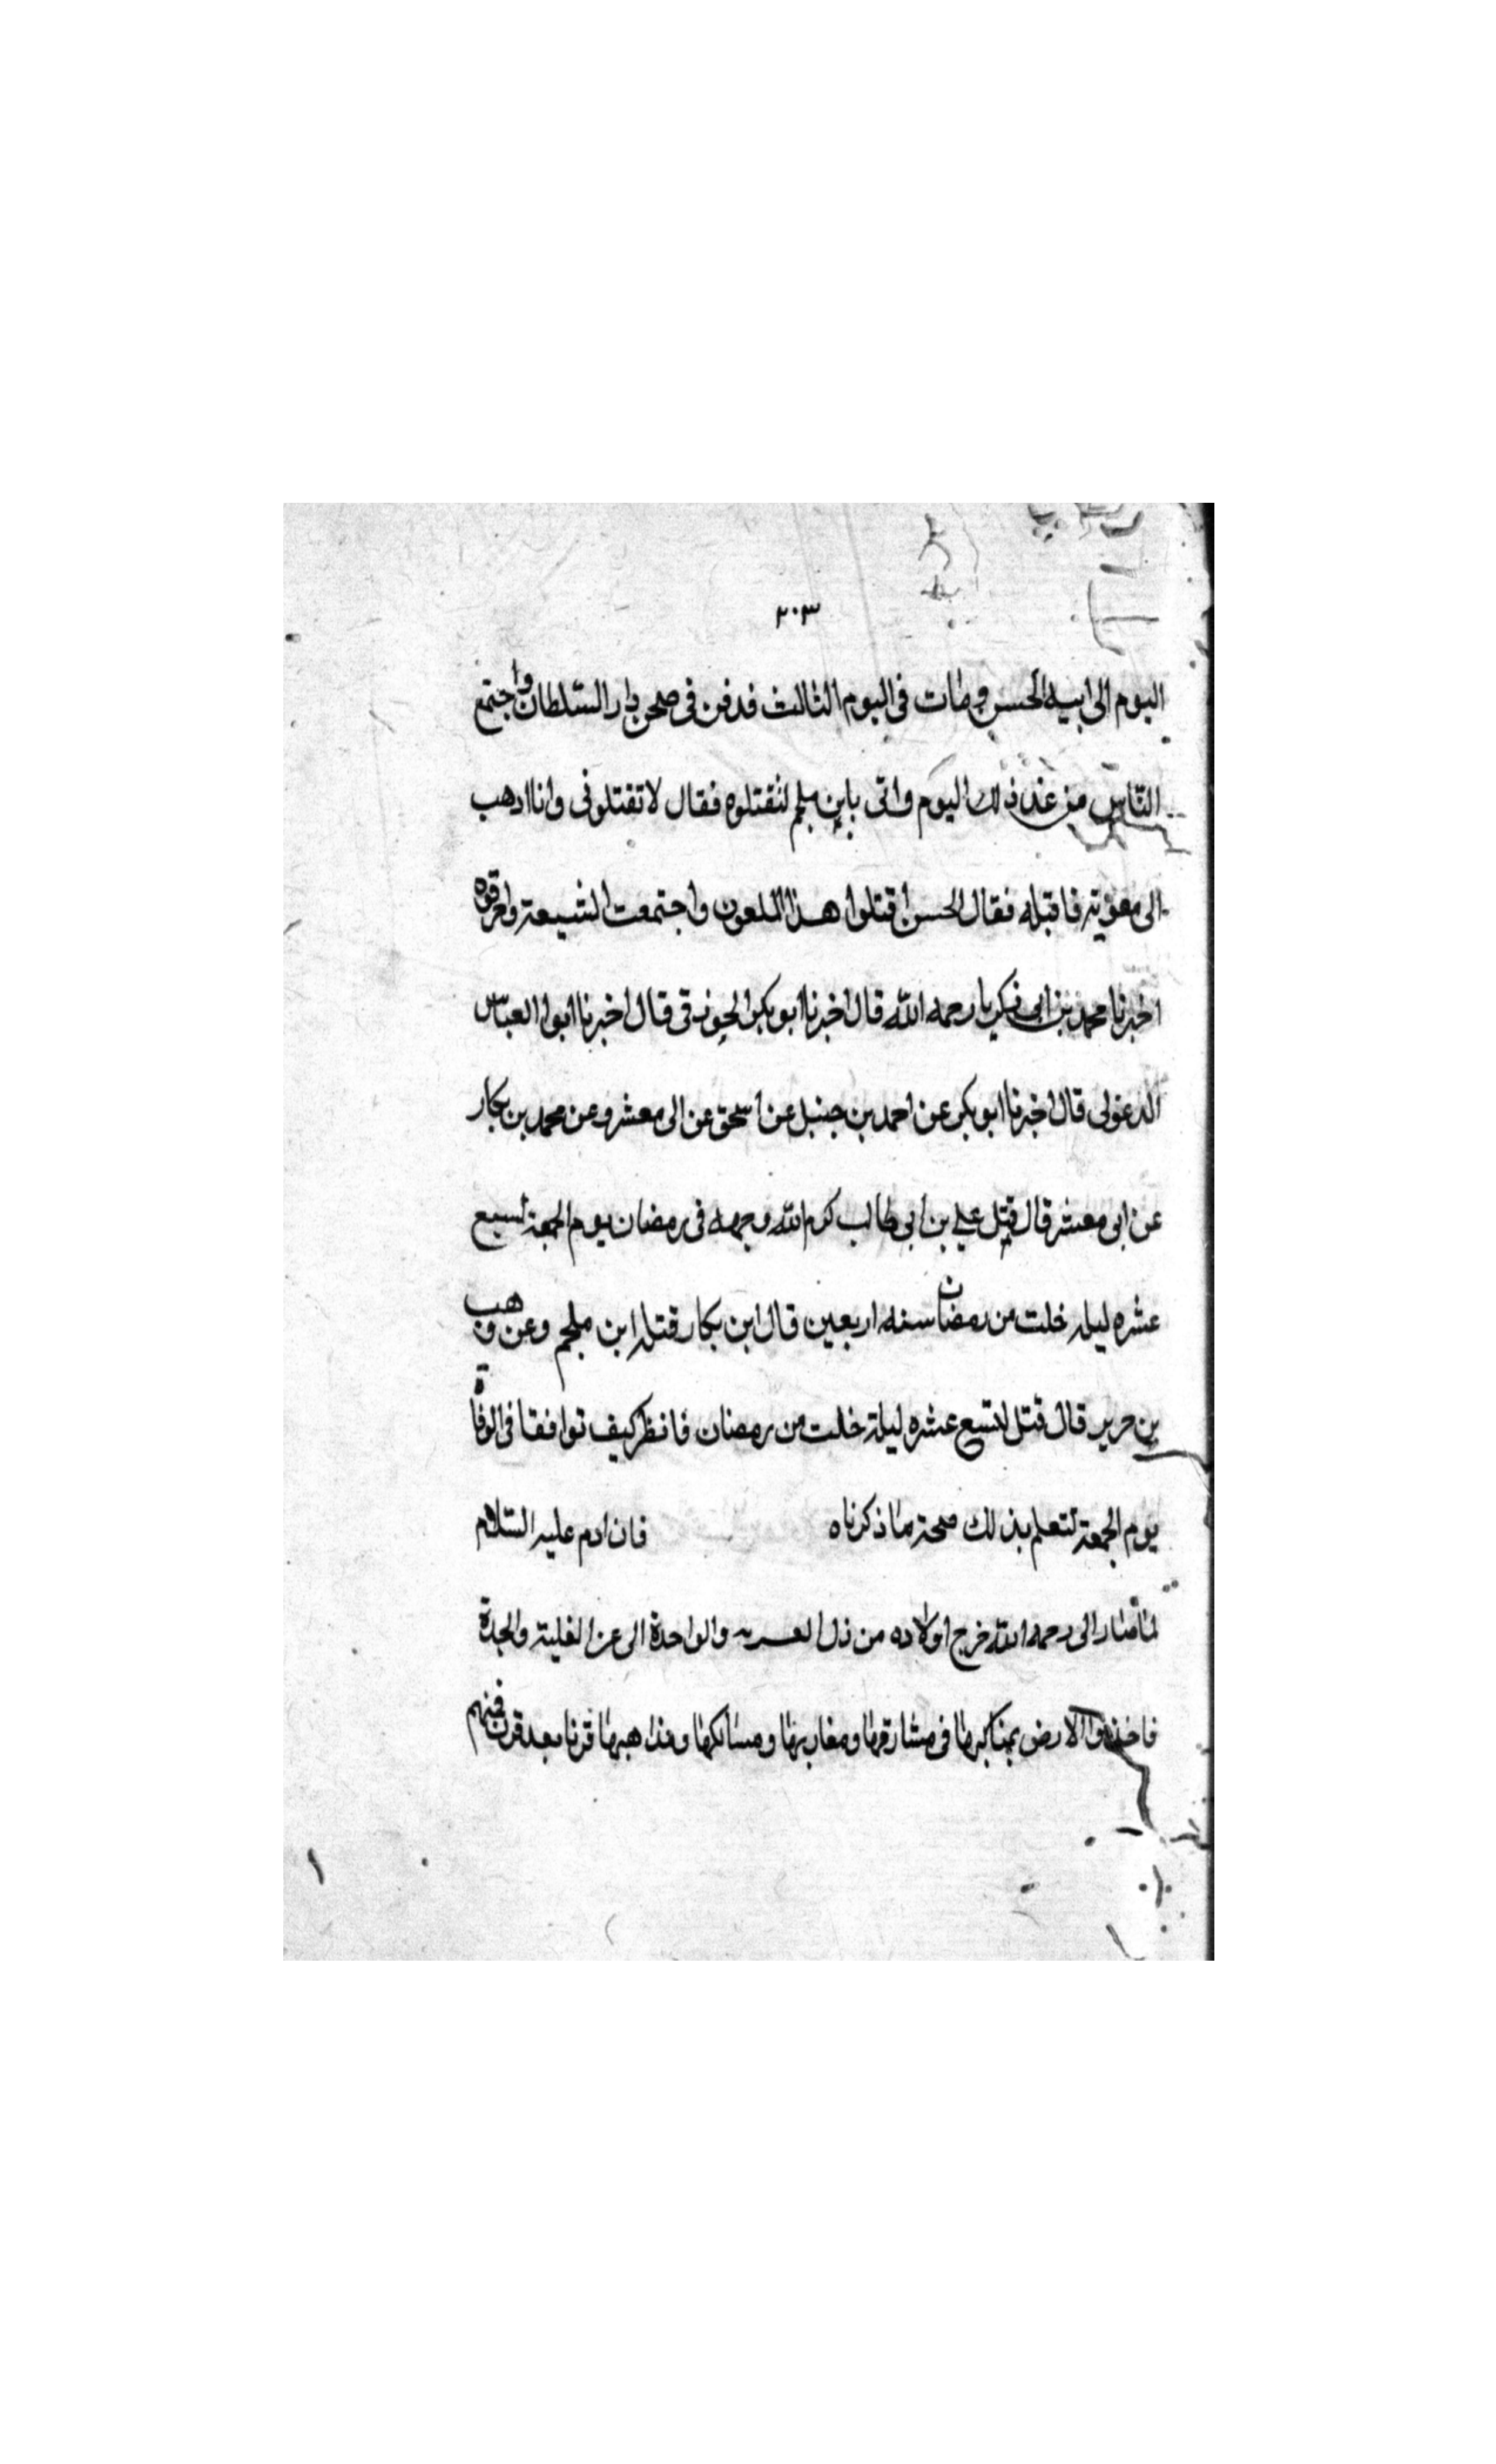 ٣٠٣
اليوم الى ابيه الحسن ومات فى اليوم الثالث فدفن فى صحن دار السلطان واجتمع
الناس من غد ذلك اليوم واتى بابن ملجم لنقتلوه فقال لا تقتلونى وانا اذهب
الى معوية فاقتله فقال الحسن اقتلوا هذا الملعون واجتمعت الشيعة واحرقوه
اخبرنا محمد بن ابى زكريا رحمه الله قال اخبرنا ابو بكر الجوزقى قال اخبرنا ابوا العباس
الدغولى قال اخبرنا ابو بكر عن احمد بن حنبل عن اسحق عن الى معشر وعن محمد بن بكار
عن ابى معشر قال قتل على بن ابى طالب كرم الله وجهه فى رمضان يوم الجمعة لسبع
عشره ليلة خلت من رمضان سنه اربعين قال ابن بكار قتله ابن ملجم وعن وهب
بن جرير قال قتل لتسع عشره ليلة خلت من رمضان فانظر كيف توافقا فى الوفاة
يوم الجمعة لتعلم بذلك صحة ما ذكرناه فان ادم عليه السلام
لما صار الى رحمه الله خرج اولاده من ذل والواحدة الى عز الغلبة والجدة
فاخذوا الارض بمناكبها فى مشارقها ومغاربها ومسالكها ومذاهبها قرنا بعد قرن فمنهم